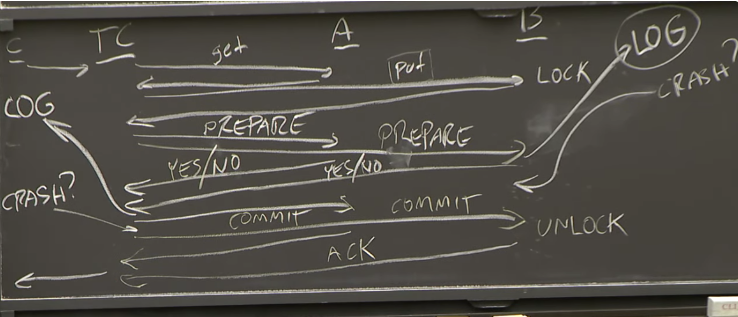 C TC A B
get
put
LOCK
LOG
CRASH?
LOG
PREPARE PREPARE
YES/NO YES/NO
CRASH?
COMMIT COMMIT
UNLOCK
ACK